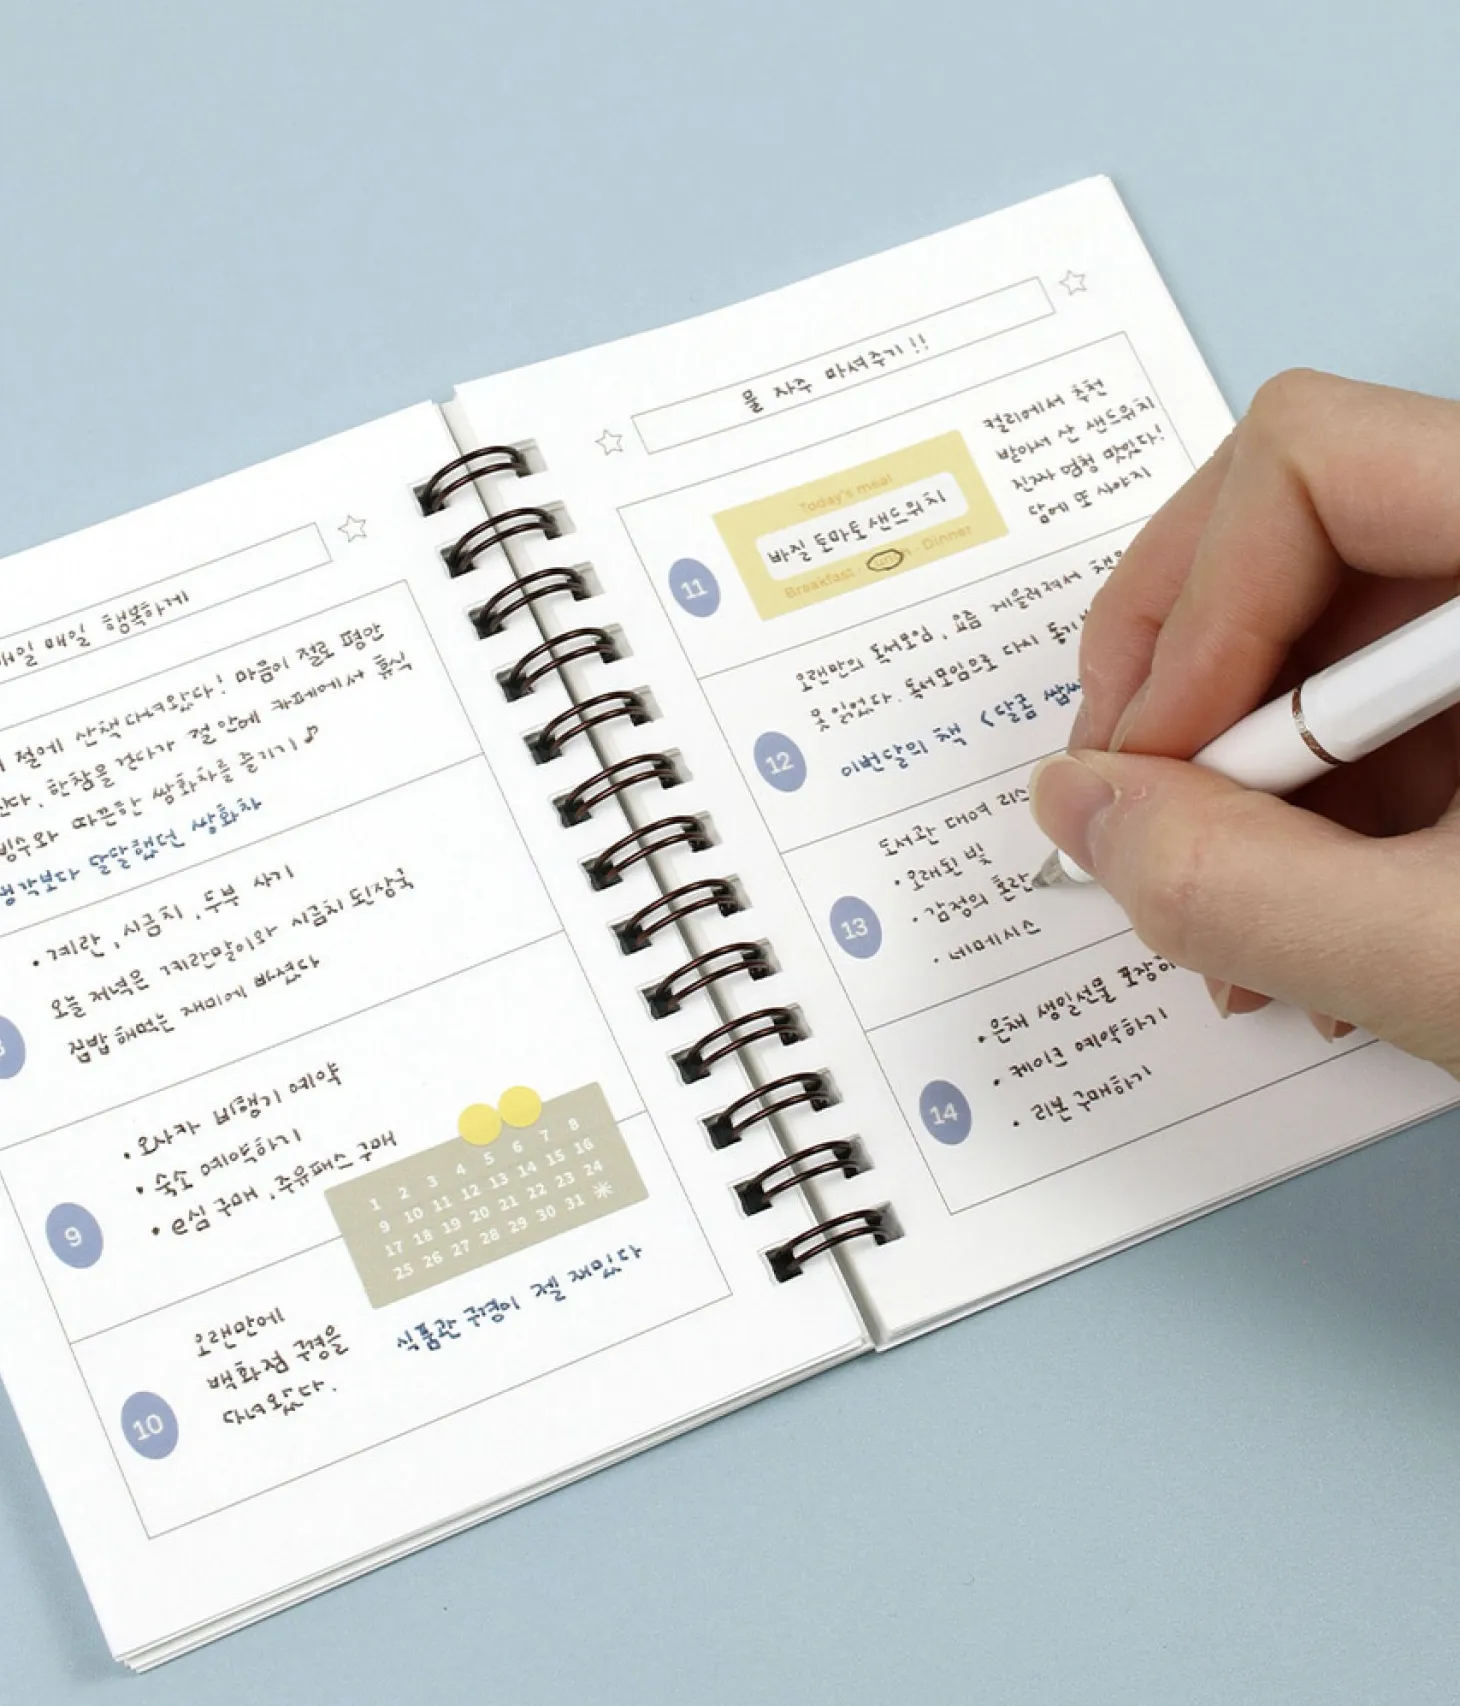 매일 매일 행복하게
절에 산책 다녀왔다! 마음이 절로 평안
한참을 걷다가 절 안에 카페에서 휴식
빙수와 따끈한 쌍화차를 즐기기♪
생각보다 달달했던 쌍화차
• 계란, 시금치, 두부 사기
오늘 저녁은 계란말이와 시금치 된장국
집밥 해먹는 재미에 빠졌다
9
• 오사카 비행기 예약
• 숙소 예약하기
• e심 구매, 주유패스 구매
1 2 3 4 5 6 7 8
9 10 11 12 13 14 15 16
17 18 19 20 21 22 23 24
25 26 27 28 29 30 31
10
오랜만에
백화점 구경을
다녀왔다.
식품관 구경이 젤 재밌다
물 자주 마셔주기!!
11
Today's meal
바질 토마토 샌드위치
Breakfast · Lunch · Dinner
컬리에서 추천
받아서 산 샌드위치
진짜 엄청 맛있다!
담에 또 사야지
12
오랜만의 독서모임, 요즘 게을러져서 책을
못 읽었다. 독서모임으로 다시
이번달의 책 <달콤 쌉싸
13
도서관 대여 리스
• 오래된 빛
• 감정의 혼란
• 네메시스
14
• 은채 생일선물 포장하
• 케이크 예약하기
• 리본 구매하기